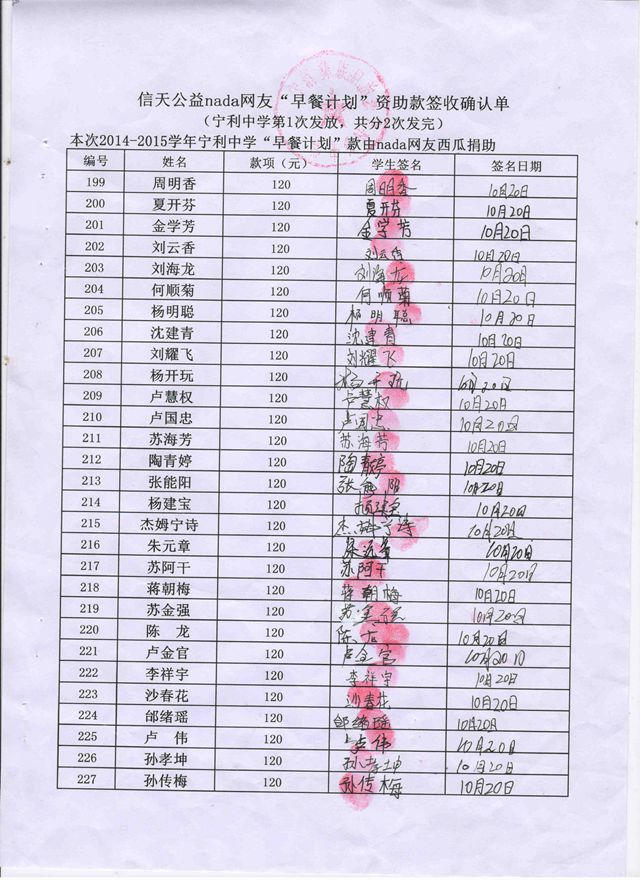 信天公益nada网友“早餐计划”资助款签收确认单
（宁利中学第1次发放，共分2次发完）
本次2014-2015学年宁利中学“早餐计划”款由nada网友西瓜捐助
编号 姓名 款项（元） 学生签名 签名日期
199 周明香 120 周明香 10月20日
200 夏开芬 120 夏开芬 10月20日
201 金学芳 120 金学芳 10月20日
202 刘云香 120 刘云香 10月20日
203 刘海龙 120 刘海龙 10月20日
204 何顺菊 120 何顺菊 10月20日
205 杨明聪 120 杨明聪 10月20日
206 沈建青 120 沈建青 10月20日
207 刘耀飞 120 刘耀飞 10月20日
208 杨开玩 120 杨开玩 10月20日
209 卢慧权 120 卢慧权 10月20日
210 卢国忠 120 卢国忠 10月20日
211 苏海芳 120 苏海芳 10月20日
212 陶青婷 120 陶青婷 10月20日
213 张能阳 120 张能阳 10月20日
214 杨建宝 120 杨建宝 10月20日
215 杰姆宁诗 120 杰姆宁诗 10月20日
216 朱元章 120 10月20日
217 苏阿干 120 苏阿干 10月20日
218 蒋朝梅 120 蒋朝梅 10月20日
219 苏金强 120 苏金强 10月20日
220 陈 龙 120 陈龙 10月20日
221 卢金官 120 卢金官 10月20日
222 李祥宇 120 李祥宇 10月20日
223 沙春花 120 沙春花 10月20日
224 邰绪瑶 120 邰绪瑶 10月20日
225 卢 伟 120 卢伟 10月20日
226 孙孝坤 120 孙孝坤 10月20日
227 孙传梅 120 孙传梅 10月20日